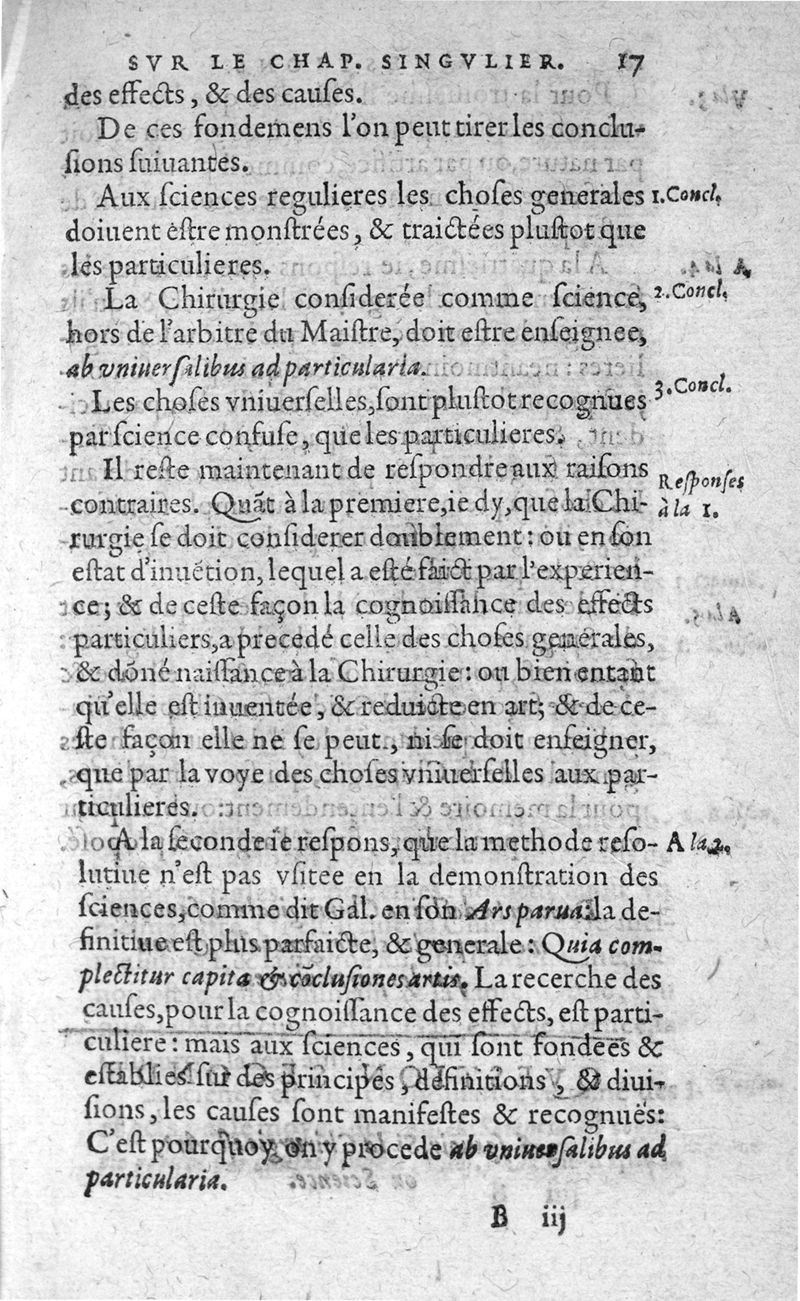 SVR LE CHAP. SINGVLIER. 17
des effects, & des causes.
De ces fondemens l'on peut tirer les conclu-
sions suiuantes.
Aux sciences regulieres les choses generales 1.Concl.
doiuent estre monstrées, & traictées plustot que
les particulieres.
La Chirurgie considerée comme science, 2.Concl.
hors de l'arbitre du Maistre, doit estre enseignee,
ab vniuersalibus ad particularia.
Les choses vniuerselles, sont plustot recognues 3.Concl.
par science confuse, que les particulieres.
Il reste maintenant de respondre aux raisons Responses
contraires. Quãt à la premiere, ie dy, que la Chi- à la 1.
rurgie se doit considerer doublement: ou en son
estat d'inuẽtion, lequel a esté faict par l'experien-
ce; & de ceste façon la cognoissance des effects
particuliers, a precedé celle des choses generales,
& dõné naissance à la Chirurgie: ou bien entant
qu'elle est inuentée, & reduicte en art; & de ce-
ste façon elle ne se peut, ni se doit enseigner,
que par la voye des choses vniuerselles aux par-
ticulieres.
A la seconde ie respons, que la methode reso- A la 2.
lutiue n'est pas vsitee en la demonstration des
sciences, comme dit Gal. en son Ars parua: la de-
finitiue est plus parfaicte, & generale: Quia com-
plectitur capita & cõclusiones artis. La recerche des
causes, pour la cognoissance des effects, est parti-
culiere: mais aux sciences, qui sont fondees &
establies sur des principes, definitions, & diui-
sions, les causes sont manifestes & recognuës:
C'est pourquoy, on y procede ab vniuersalibus ad
particularia.
B iij